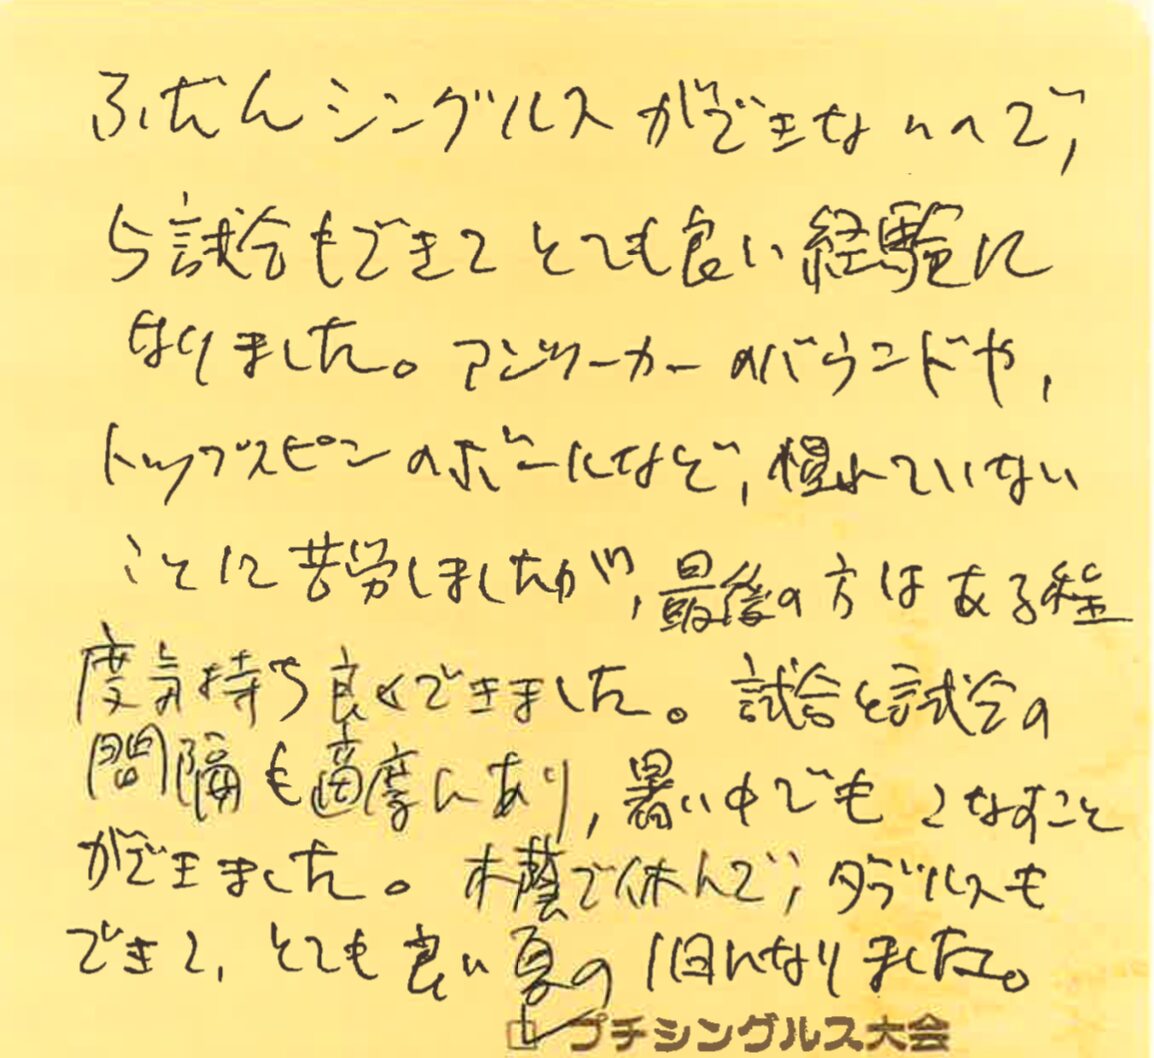 ふだんシングルスができないので,
5試合もできてとても良い経験に
なりました。アンツーカーのバウンドや,
トップスピンのボールなど,慣れていない
ことに苦労しましたが,最後の方はある程
度気持ち良くできました。試合と試合の
間隔も適度にあり,暑い中でもこなすこと
ができました。木蔭で休んで,ダブルスも
できて,とても良い夏の1日になりました。
プチシングルス大会